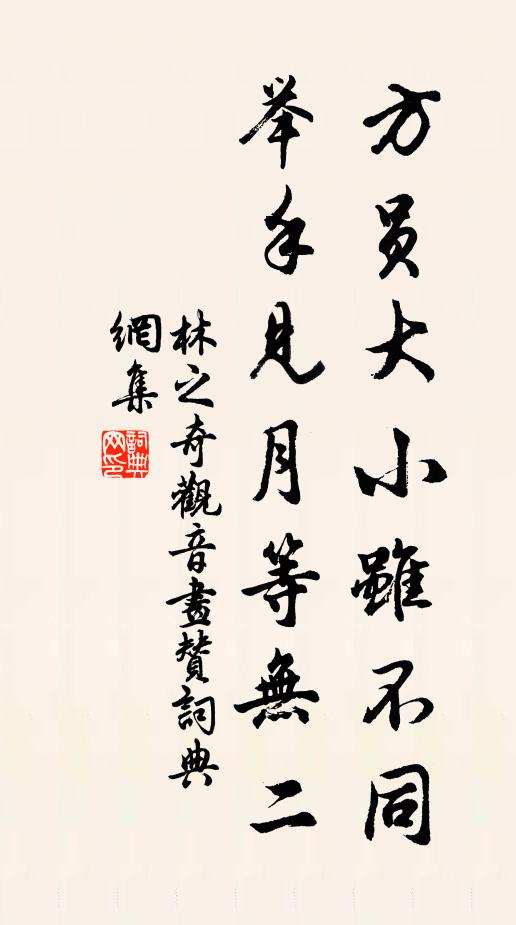 方员大小雖不同
举手見月等無二
林之奇觀音畫賛詞典
網集
詞典
网印